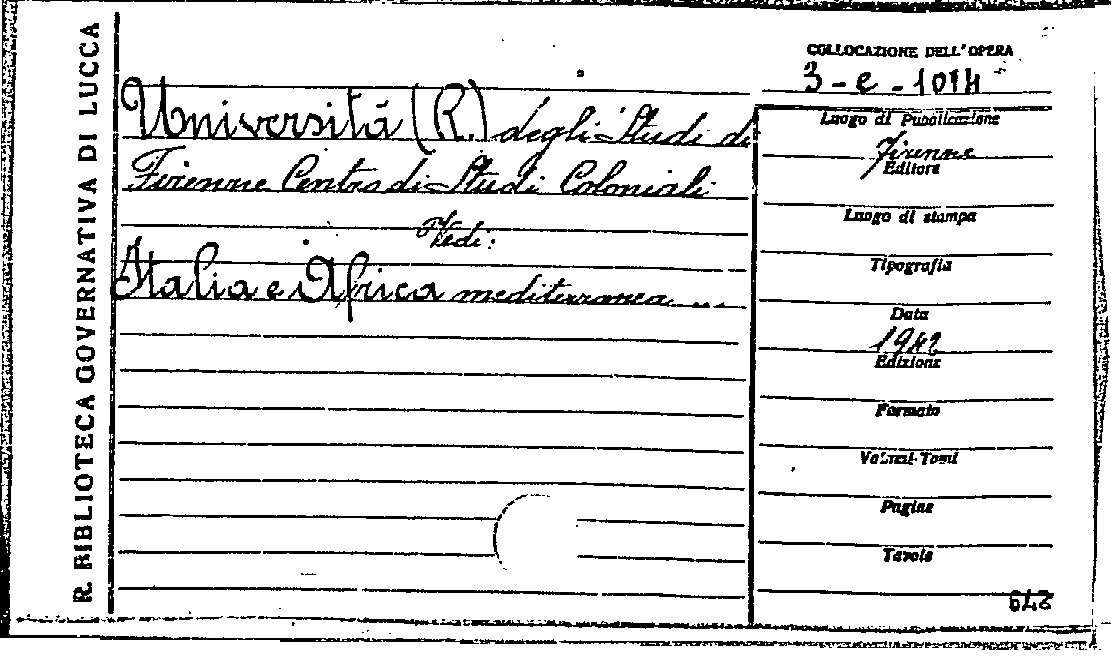 R. BIBLIOTECA GOVERNATIVA DI LUCCA
COLLOCAZIONE DELL'OPERA
3-e-1014
Università (R.) degli Studi di
Firenze Centro di Studi Coloniali
Vedi:
Italia e Africa mediterranea ...
Luogo di Pubblicazione
Firenze
Editore
Luogo di stampa
Tipografia
Data
1942
Edizione
Formato
Volumi-Tomi
Pagine
Tavole